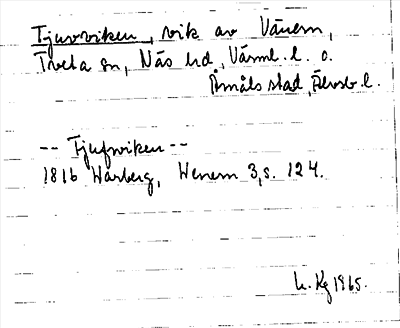 Tjuvviken, vik av Vänern,
Tveta sn, Näs hd, Värml. l. o.
Åmåls stad, Älvsb. l.
-- Tjufwiken --
1816 Warberg, Wenern 3, s. 124.
L. Kg 1965.